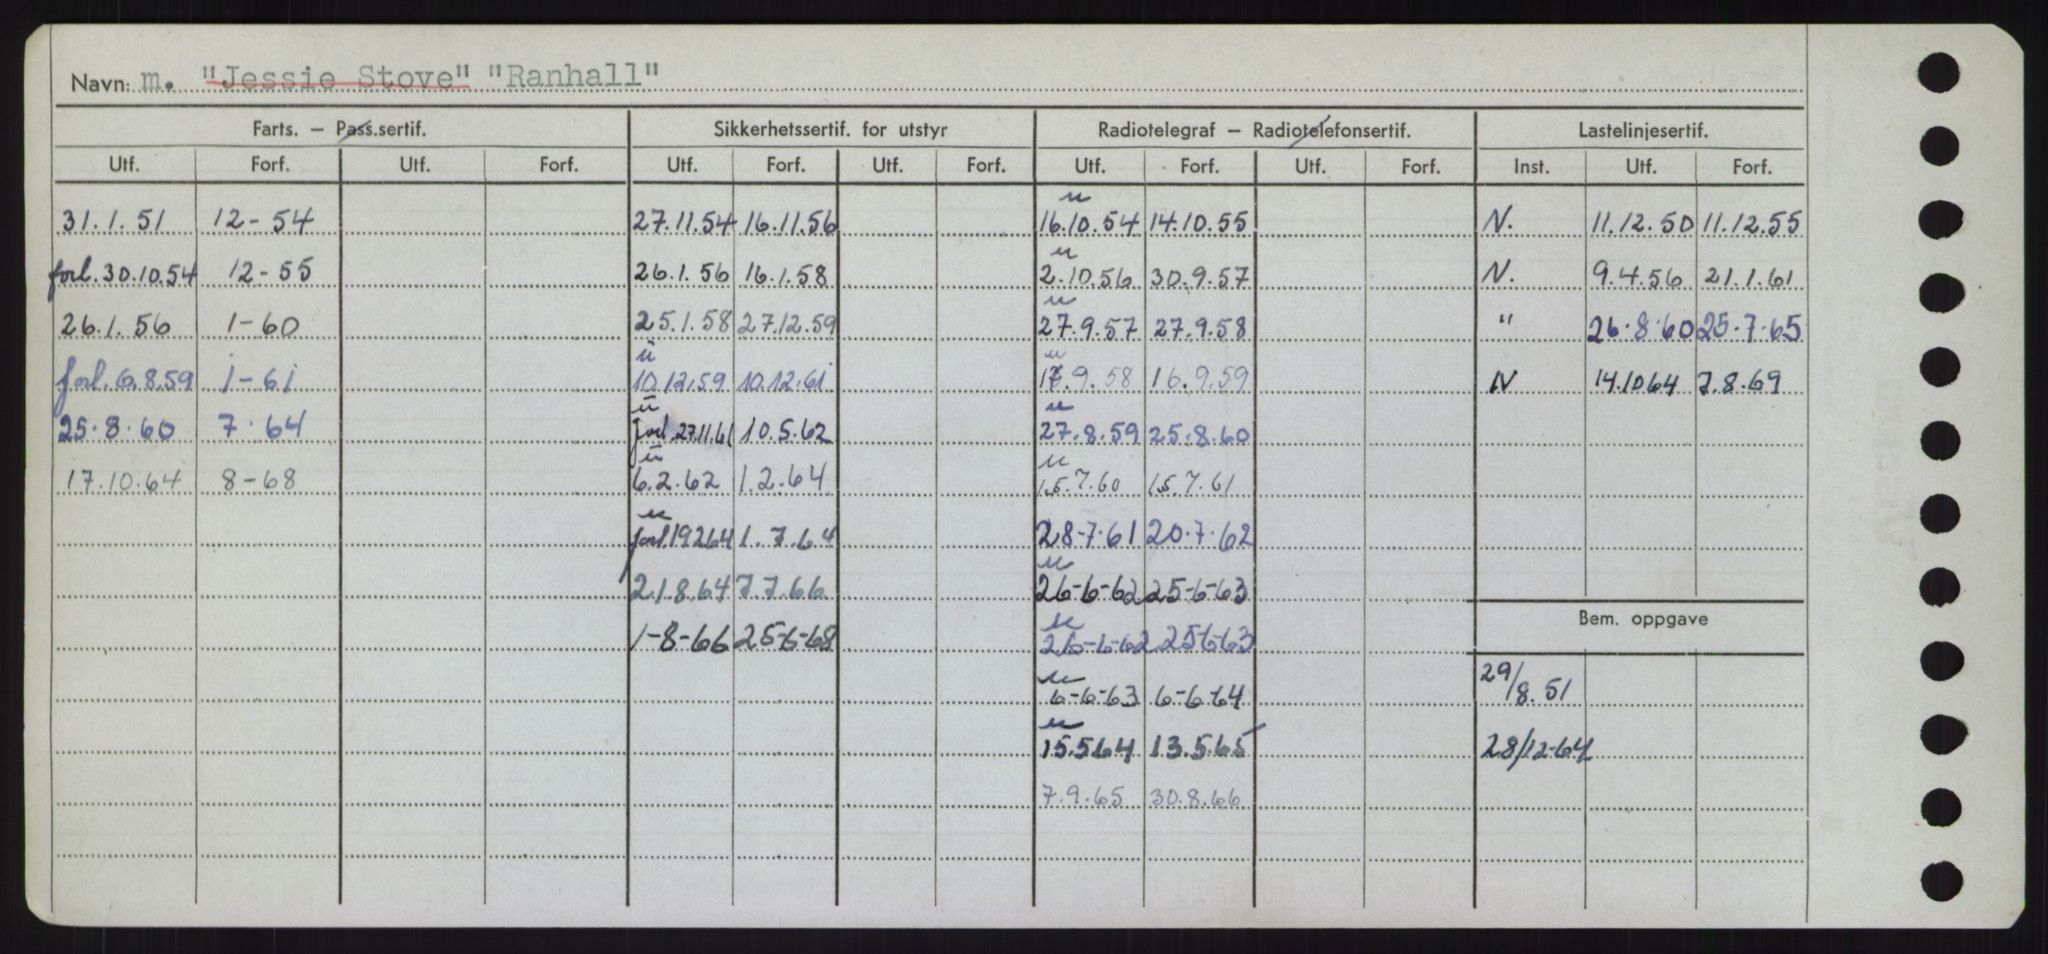 Navn: m. "Jessie Stove" "Ranhall"
Farts. – Pass.sertif. Sikkerhetssertif. for utstyr Radiotelegraf – Radiotelefonsertif. Lastelinjesertif.
Utf. Forf. Utf. Forf. Utf. Forf. Utf. Forf. Utf. Forf. Utf. Forf. Inst. Utf. Forf.
31.1.51 12-54 27.11.54 16.11.56 16.10.54 14.10.55 N. 11.12.50 11.12.55
forl. 30.10.54 12-55 26.1.56 16.1.58 2.10.56 30.9.57 N. 9.4.56 21.1.61
26.1.56 1-60 25.1.58 27.12.59 27.9.57 27.9.58 " 26.8.60 25.7.65
forl. 6.8.59 1-61 10.12.59 10.12.61 17.9.58 16.9.59 N 14.10 64 7.8.69
25.8.60 7.64 forl. 27.11.61 10.5.62 27.8.59 25.8.60
17.10.64 8-68 6.2.62 1.2.64 15.7.60 15.7.61
forl. 19264 1.7.64 28-7-61 20.7.62
21.8.64 7.7.66 26-6-62 25-6-63
1-8-66 25-6-68 26-6-62 25-6-63
Bem. oppgave
6-6-63 6-6-64 29/8.51
15.5.64 13.5.65 28/12-64
7.9.65 30.8.66